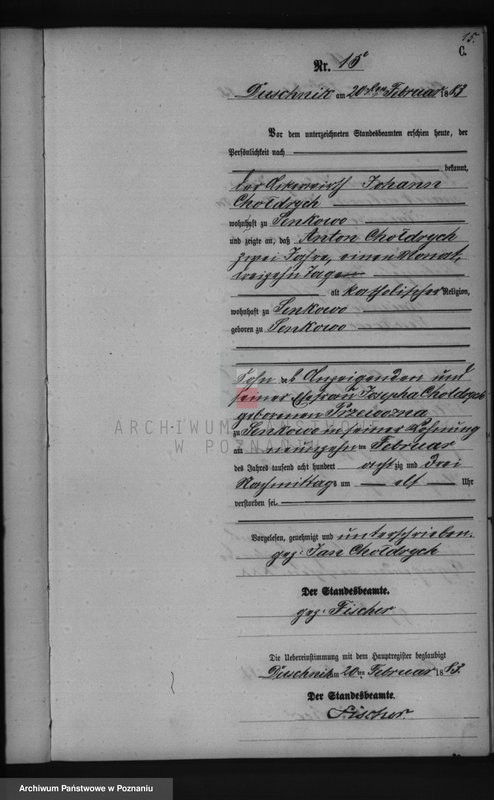 15.
C.
Nr. 15
Duschnik am 20ten Februar 1883
Vor dem unterzeichneten Standesbeamten erschien heute, der
Persönlichkeit nach
bekannt,
der Ackerwirth Johann
Choldrych
wohnhaft zu Senkowo
und zeigte an, daß Anton Choldrych
zwei Jahre, einen Monat,
dreizehn Tage
alt katholischer Religion,
wohnhaft zu Senkowo
geboren zu Senkowo
Sohn des Anzeigenden und
seiner Ehefrau Josepha Choldrych
geborenen
zu Senkowo in seiner Wohnung
am neunzehnten Februar
des Jahres tausend acht hundert achtzig und drei
Nachmittags um elf Uhr
verstorben sei.
Vorgelesen, genehmigt und unterschrieben.
gez. Jan Choldrych
Der Standesbeamte.
gez. Fischer
Die Uebereinstimmung mit dem Hauptregister beglaubigt
Duschnik am 20ten Februar 1883.
Der Standesbeamte.
Fischer.
ARCHIWUM PAŃSTWOWE
W POZNANIU
Archiwum Państwowe w Poznaniu